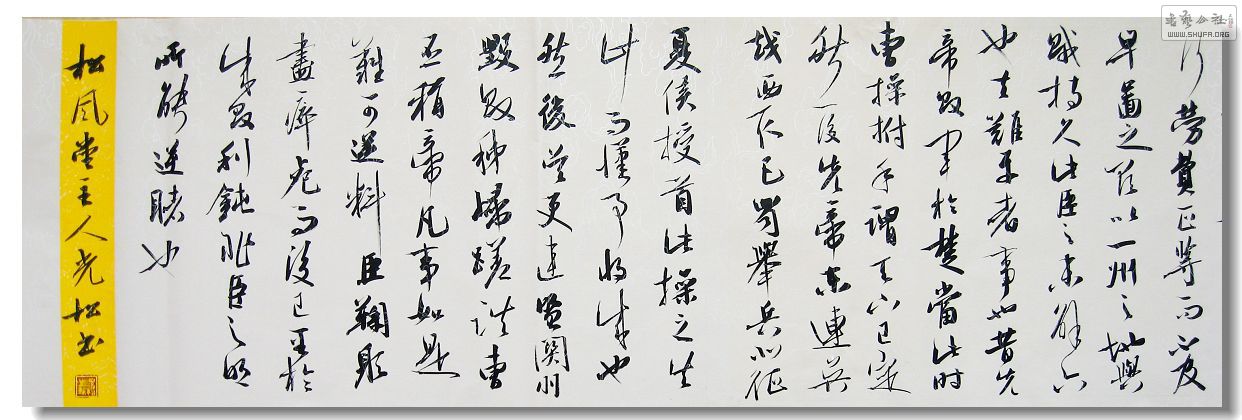 行勞費正等而不及
早圖之欲以一州之地與
賊持久此臣之未解六
也夫難平者事也昔先
帝敗軍於楚當此時
曹操拊手謂天下已定
然後先帝東連吳
越西取巴蜀舉兵北征
夏侯授首此操之失
計而漢事將成也
然後吳更違盟關羽
毀敗秭歸蹉跌曹
丕稱帝凡事如是
難可逆料臣鞠躬
盡瘁死而後已至於
成敗利鈍非臣之明
所能逆睹也
松風堂主人光松書
WWW.SHUFA.ORG